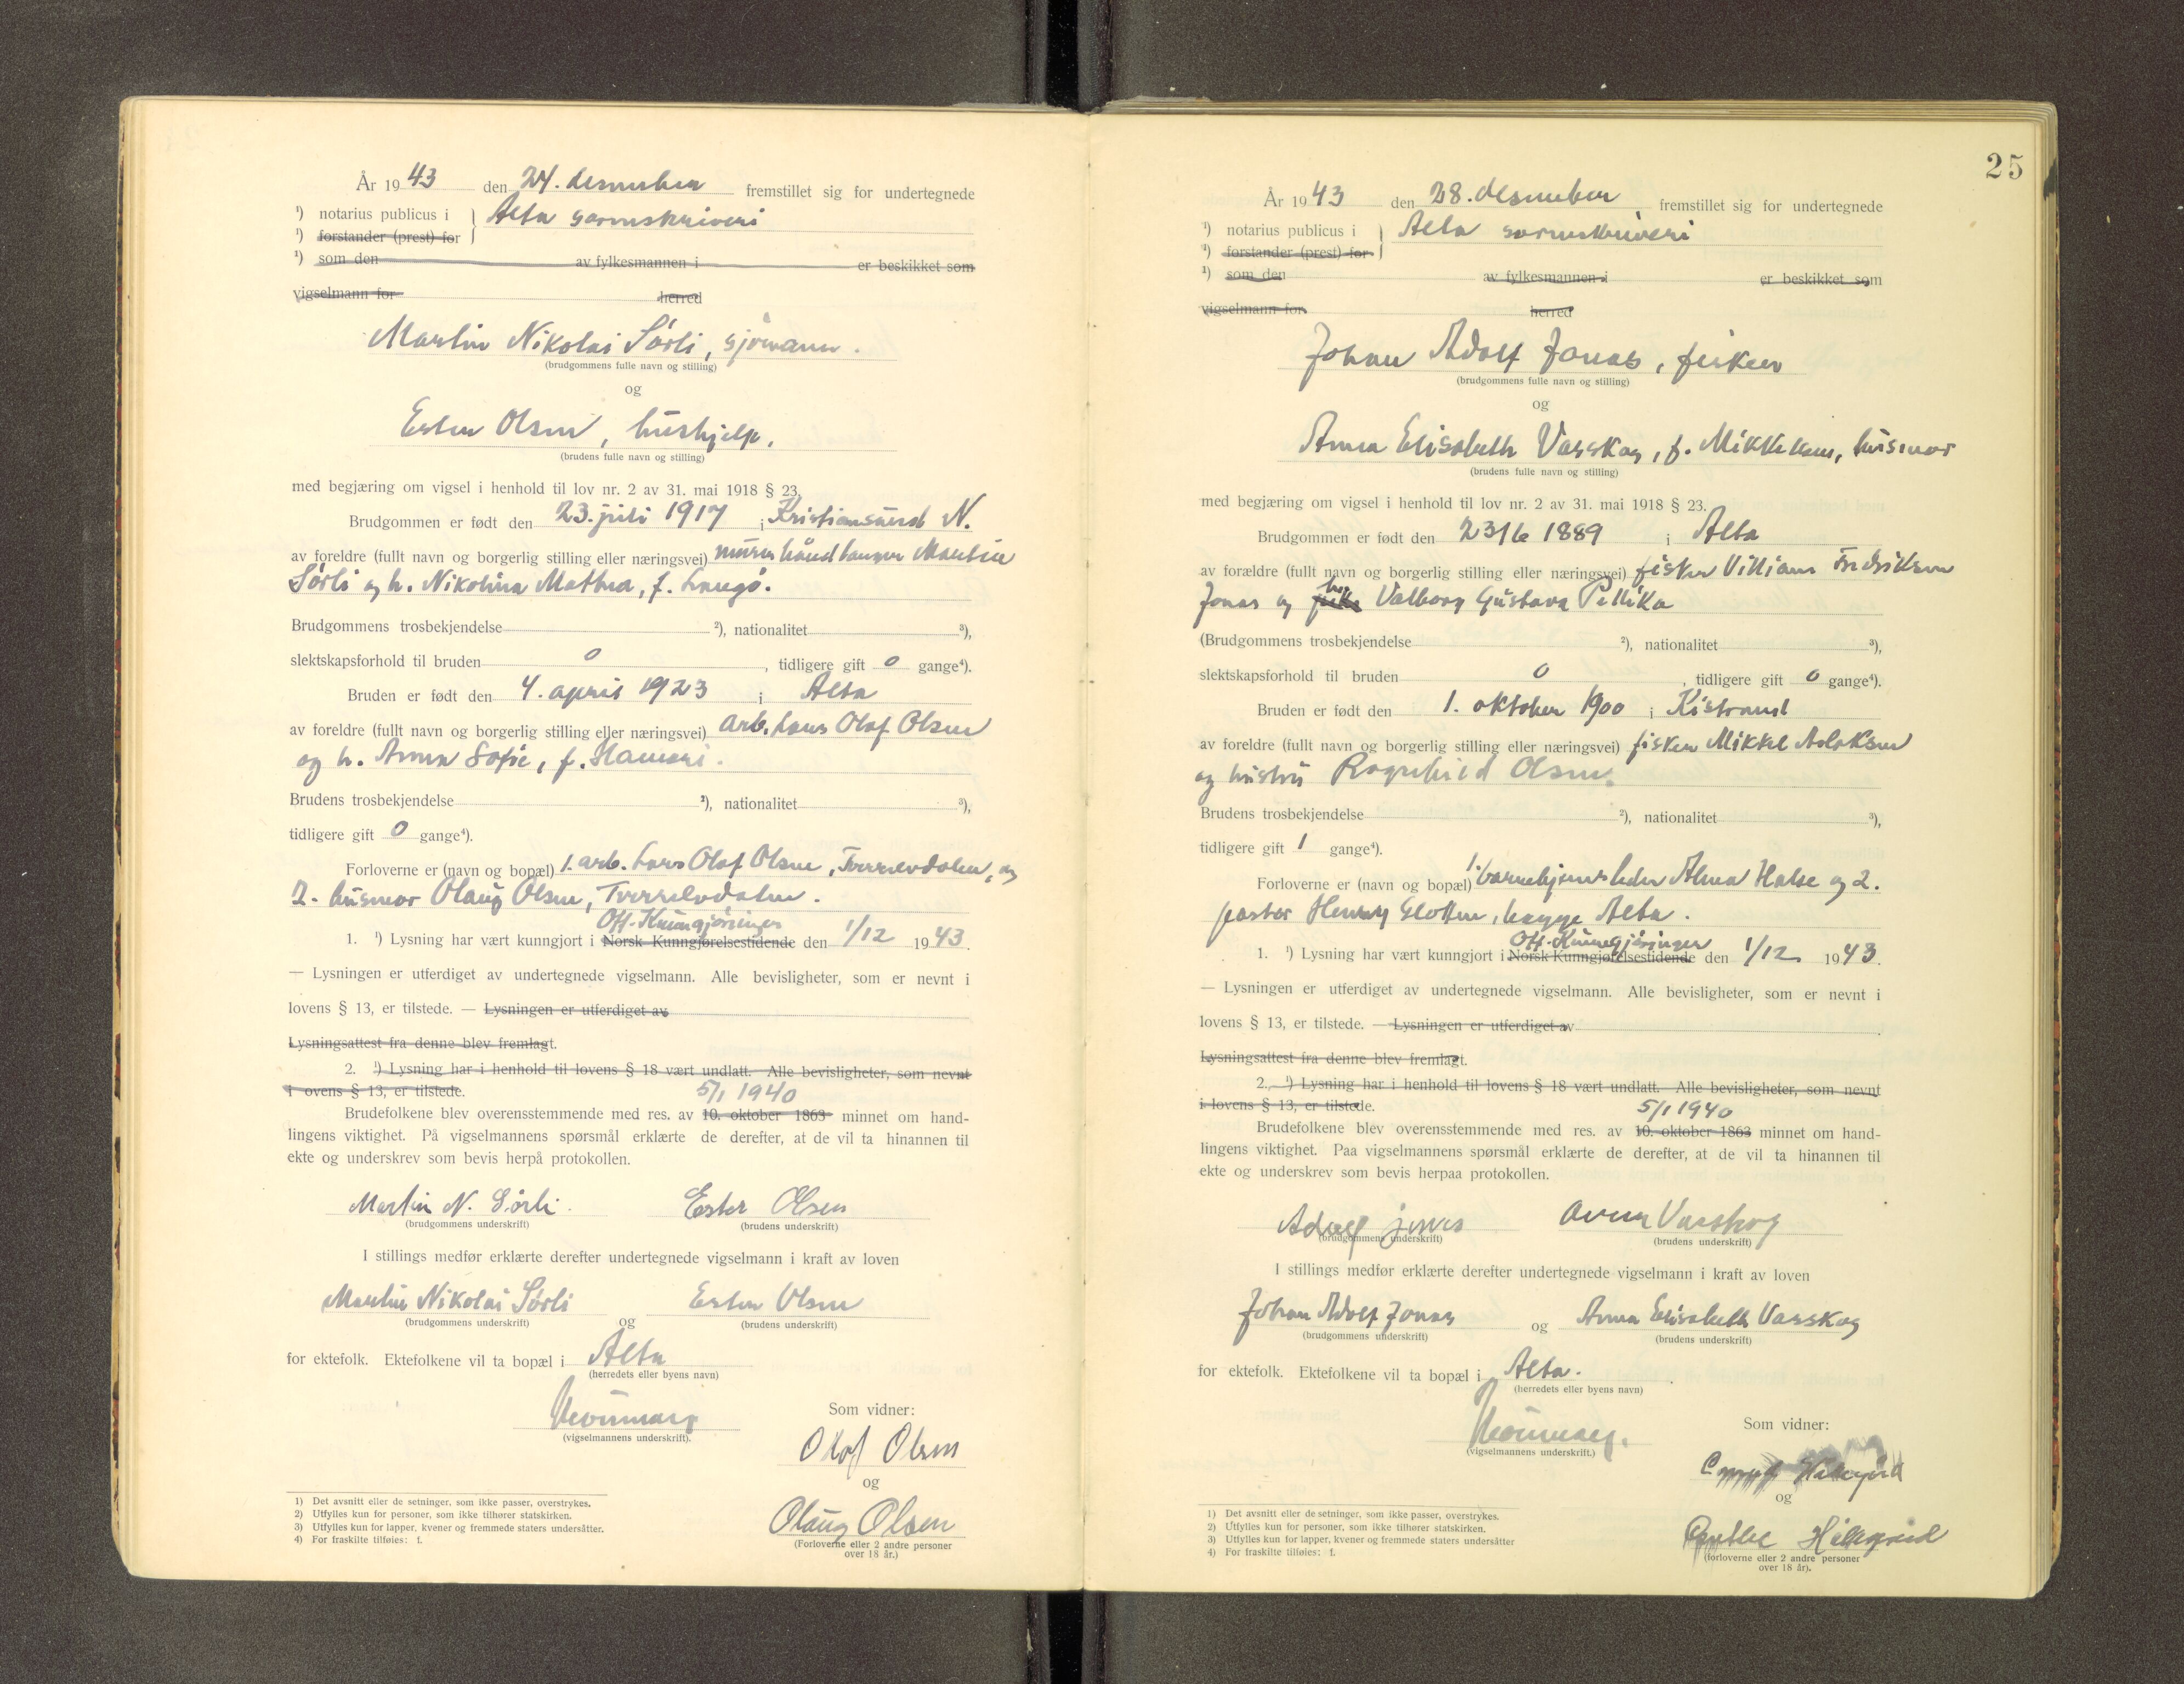 År 1943 den 24. desember fremstillet sig for undertegnede
¹) notarius publicus i } Alta sorenskriveri
¹) forstander (prest) for
¹) som den av fylkesmannen i er beskikket som
vigselmann for herred
Martin Nikolai Sørli, sjømann.
(brudgommens fulle navn og stilling)
og
Ester Olsen, hushjelp.
(brudens fulle navn og stilling)
med begjæring om vigsel i henhold til lov nr. 2 av 31. mai 1918 § 23.
Brudgommen er født den 23. juli 1917 i Kristiansund N.
av foreldre (fullt navn og borgerlig stilling eller næringsvei) murerhåndlanger Martin
Sørli og h. Nikolina Mathea, f. Langø.
Brudgommens trosbekjendelse ²), nationalitet ³),
slektskapsforhold til bruden 0, tidligere gift 0 gange⁴).
Bruden er født den 4. april 1923 i Alta
av foreldre (fullt navn og borgerlig stilling eller næringsvei) arb. Lars Olaf Olsen
og h. Anna Sofie, f.
Brudens trosbekjendelse ²), nationalitet ³),
tidligere gift 0 gange⁴).
Forloverne er (navn og bopæl) 1. arb. Lars Olaf Olsen, Tverrelvdalen, og
2. husmor Olaug Olsen, Tverrelvdalen.
Off. Kunngjøringer
1. ¹) Lysning har vært kunngjort i Norsk Kunngjørelsestidende den 1/12 1943.
— Lysningen er utferdiget av undertegnede vigselmann. Alle bevisligheter, som er nevnt i
lovens § 13, er tilstede. — Lysningen er utferdiget av
Lysningsattest fra denne blev fremlagt.
2. ¹) Lysning har i henhold til lovens § 18 vært undlatt. Alle bevisligheter, som nevnt
i ovens § 13, er tilstede.
5/1 1940
Brudefolkene blev overensstemmende med res. av 10. oktober 1863 minnet om hand-
lingens viktighet. På vigselmannens spørsmål erklærte de derefter, at de vil ta hinannen til
ekte og underskrev som bevis herpå protokollen.
Martin N. Sørli. Ester Olsen
(brudgommens underskrift) (brudens underskrift)
I stillings medfør erklærte derefter undertegnede vigselmann i kraft av loven
Martin Nikolai Sørli og Ester Olsen
(brudgommens underskrift) (brudens underskrift)
for ektefolk. Ektefolkene vil ta bopæl i Alta
(herredets eller byens navn)
(vigselmannens underskrift).
Som vidner:
Olaf Olsen
og
Olaug Olsen
(Forloverne eller 2 andre personer
over 18 år.)
1) Det avsnitt eller de setninger, som ikke passer, overstrykes.
2) Utfylles kun for personer, som ikke tilhører statskirken.
3) Utfylles kun for lapper, kvener og fremmede staters undersåtter.
4) For fraskilte tilføies: f.
25
År 1943 den 28. desember fremstillet sig for undertegnede
¹) notarius publicus i } Alta sorenskriveri
¹) forstander (prest) for
¹) som den av fylkesmannen i er beskikket som
vigselmann for herred
Johan Adolf Jonas, fisker
(brudgommens fulle navn og stilling)
og
Anna Elisabeth Vasskog, f. Mikkelsen, husmor
(brudens fulle navn og stilling)
med begjæring om vigsel i henhold til lov nr. 2 av 31. mai 1918 § 23.
Brudgommen er født den 23/6 1889 i Alta
av forældre (fullt navn og borgerlig stilling eller næringsvei) fisker Villiam Fredriksen
Jonas og h. Valborg Gustava Pellika
(Brudgommens trosbekjendelse ²), nationalitet ³),
slektskapsforhold til bruden 0, tidligere gift 0 gange⁴).
Bruden er født den 1. oktober 1900 i Kistrand
av foreldre (fullt navn og borgerlig stilling eller næringsvei) fisker Mikkel Aslaksen
og hustru Ragnhild Olsen.
Brudens trosbekjendelse ²), nationalitet ³),
tidligere gift 1 gange⁴).
Forloverne er (navn og bopæl) 1. barnehjemsleder Alma Halse og 2.
pastor Henry Slotten, begge Alta.
Off. Kunngjøringer
1. ¹) Lysning har vært kunngjort i Norsk Kunngjørelsestidende den 1/12 1943.
— Lysningen er utferdiget av undertegnede vigselmann. Alle bevisligheter, som er nevnt i
lovens § 13, er tilstede. — Lysningen er utferdiget av
Lysningsattest fra denne blev fremlagt.
2. ¹) Lysning har i henhold til lovens § 18 vært undlatt. Alle bevisligheter, som nevnt
i lovens § 13, er tilstede.
5/1 1940
Brudefolkene blev overensstemmende med res. av 10. oktober 1863 minnet om hand-
lingens viktighet. Paa vigselmannens spørsmål erklærte de derefter, at de vil ta hinannen til
ekte og underskrev som bevis herpaa protokollen.
Adolf Jonas Anna Vasskog
(brudgommens underskrift) (brudens underskrift)
I stillings medfør erklærte derefter undertegnede vigselmann i kraft av loven
Johan Adolf Jonas og Anna Elisabeth Vasskog
(brudgommens underskrift) (brudens underskrift)
for ektefolk. Ektefolkene vil ta bopæl i Alta.
(herredets eller byens navn)
(vigselmannens underskrift.)
Som vidner:
og
(forloverne eller 2 andre personer
over 18 år).
1) Det avsnitt eller de setninger, som ikke passer, overstrykes.
2) Utfylles kun for personer, som ikke tilhører statskirken.
3) Utfylles kun for lapper, kvener og fremmede staters undersåtter
4) For fraskilte tilføies: f.